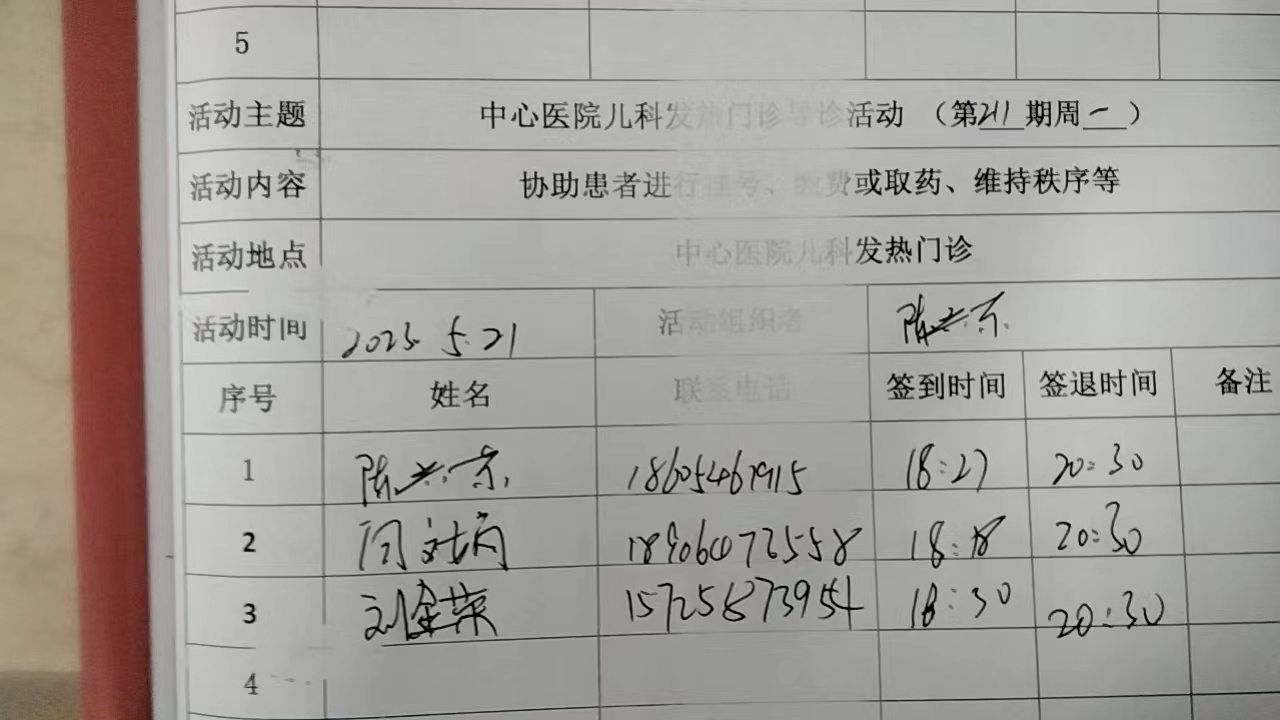 5
活动主题 中心医院儿科发热门诊导诊活动 （第211期周一）
活动内容 协助患者进行挂号、缴费或取药、维持秩序等
活动地点 中心医院儿科发热门诊
活动时间 2023.5.21 活动组织者
序号 姓名 联系电话 签到时间 签退时间 备注
1 18605461915 18:27 20:30
2 18906407255 18:18 20:30
3 刘金荣 15725873954 18:30 20:30
4